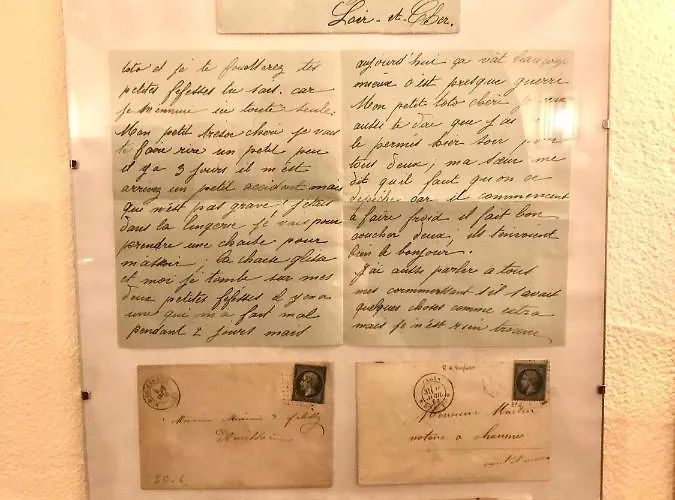 Loir-et-Cher.
toto et je te fouetterez tes
petites fefesses tu sais. car
je m'ennuie ici toute seule.
Mon petit tresor cheri je vais
te faire rire un petit peu
il y a 3 jours il m'est
arrivez un petit accident mais
qui n'est pas grave! j'etais
dans la lingerie je vais pour
prendre une chaise pour
m'assoir; la chaise glisa
et moi je tombe sur mes
deux petites fefesses il y en a
une qui m'a fait mal
pendant 2 jours mais
aujourd'hui ça vât beaucoup
mieux c'est presque guerre
Mon petit toto cheri je
aussi te dire que j'ai
le permis hier soir pour
tous deux; ma sœur me
dit qu'il faut qu'on ce
depeche car il commencent
à faire froid il fait bon
coucher deux; ils t'envoient
bien le bonjour.
J'ai aussi parler a tous
mes commerssant s'il savait
quelques choses comme extra
mais je n'est rien trouver
Monsieur Martin
notaire a